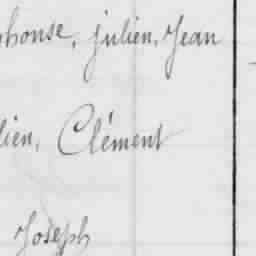 phonse, julien, Jean
lien, Clément
Joseph